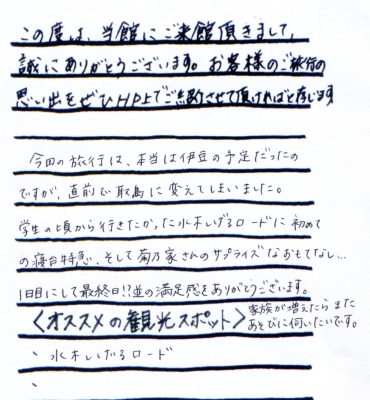 この度は、当館にご来館頂きまして、
誠にありがとうございます。お客様のご旅行の
思い出をぜひHP上でご紹介させて頂ければと存じます
今回の旅行は、本当は伊豆の予定だったの
ですが、直前で鳥取に変えてしまいました。
学生の頃から行きたかった水木しげるロードに初めて
の寝台特急、そして菊乃家さんのサプライズなおもてなし…
1日目にして最終日!?並の満足感をありがとうございます。
家族が増えたらまた
あそびに伺いたいです。
<オススメの観光スポット>
、水木しげるロード
、